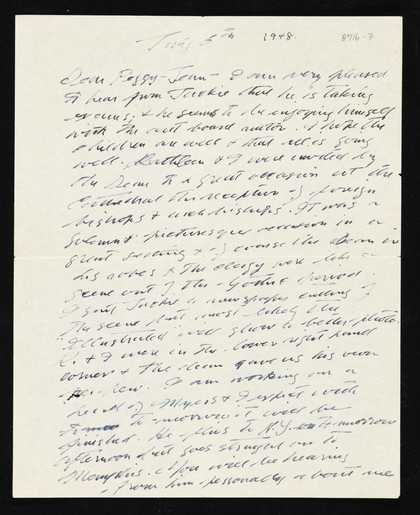 July 5th 1948. 8716-7
Dear Peggy-Jean - I am very pleased
to hear from Jackie that he is taking
& he seems to be enjoying himself
with the out board motor. I hope the
children are well & that all is going
well. Kathleen & I were invited by
the Dean to a great occasion at the
Cathedral the reception of foreign
bishops & archbishops. It was a
solemn & picturesque occasion in a
great setting & of course the Dean in
his robes & the clergy were like a
scene out of the Gothic period.
I sent Jackie a newspaper cutting of
the scene but most likely the
Illustrated will show a better photo.
K. & I were in the lower right hand
corner & the dean gave us his own
pew. I am working on a
head of Myers & I expect with
to-morrow it will be
finished. He flies to N.Y. to-morrow
afternoon but goes straight on to
Memphis. You will be hearing
from him personally about me